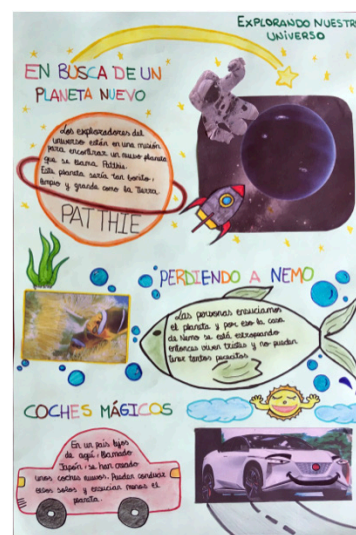 EXPLORANDO NUESTRO
UNIVERSO
EN BUSCA DE UN
PLANETA NUEVO
Los exploradores del
universo están en una misión
para encontrar un nuevo planeta
que se llama Patthie.
Este planeta sería tan bonito,
limpio y grande como la Tierra.
PATTHIE
PERDIENDO A NEMO
Las personas ensuciamos
el planeta y por eso la casa
de Nemo se está estropeando
entonces viven tristes y no pueden
tener tantos pececitos.
COCHES MÁGICOS
En un país lejos
de aquí, llamado
Japón, se han creado
unos coches nuevos. Pueden conducir
ellos solos y ensucian menos el
planeta.